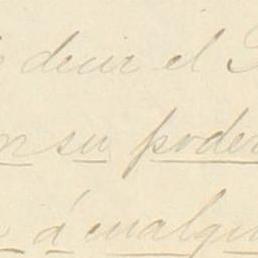 decir el
en su poder
á cualqu